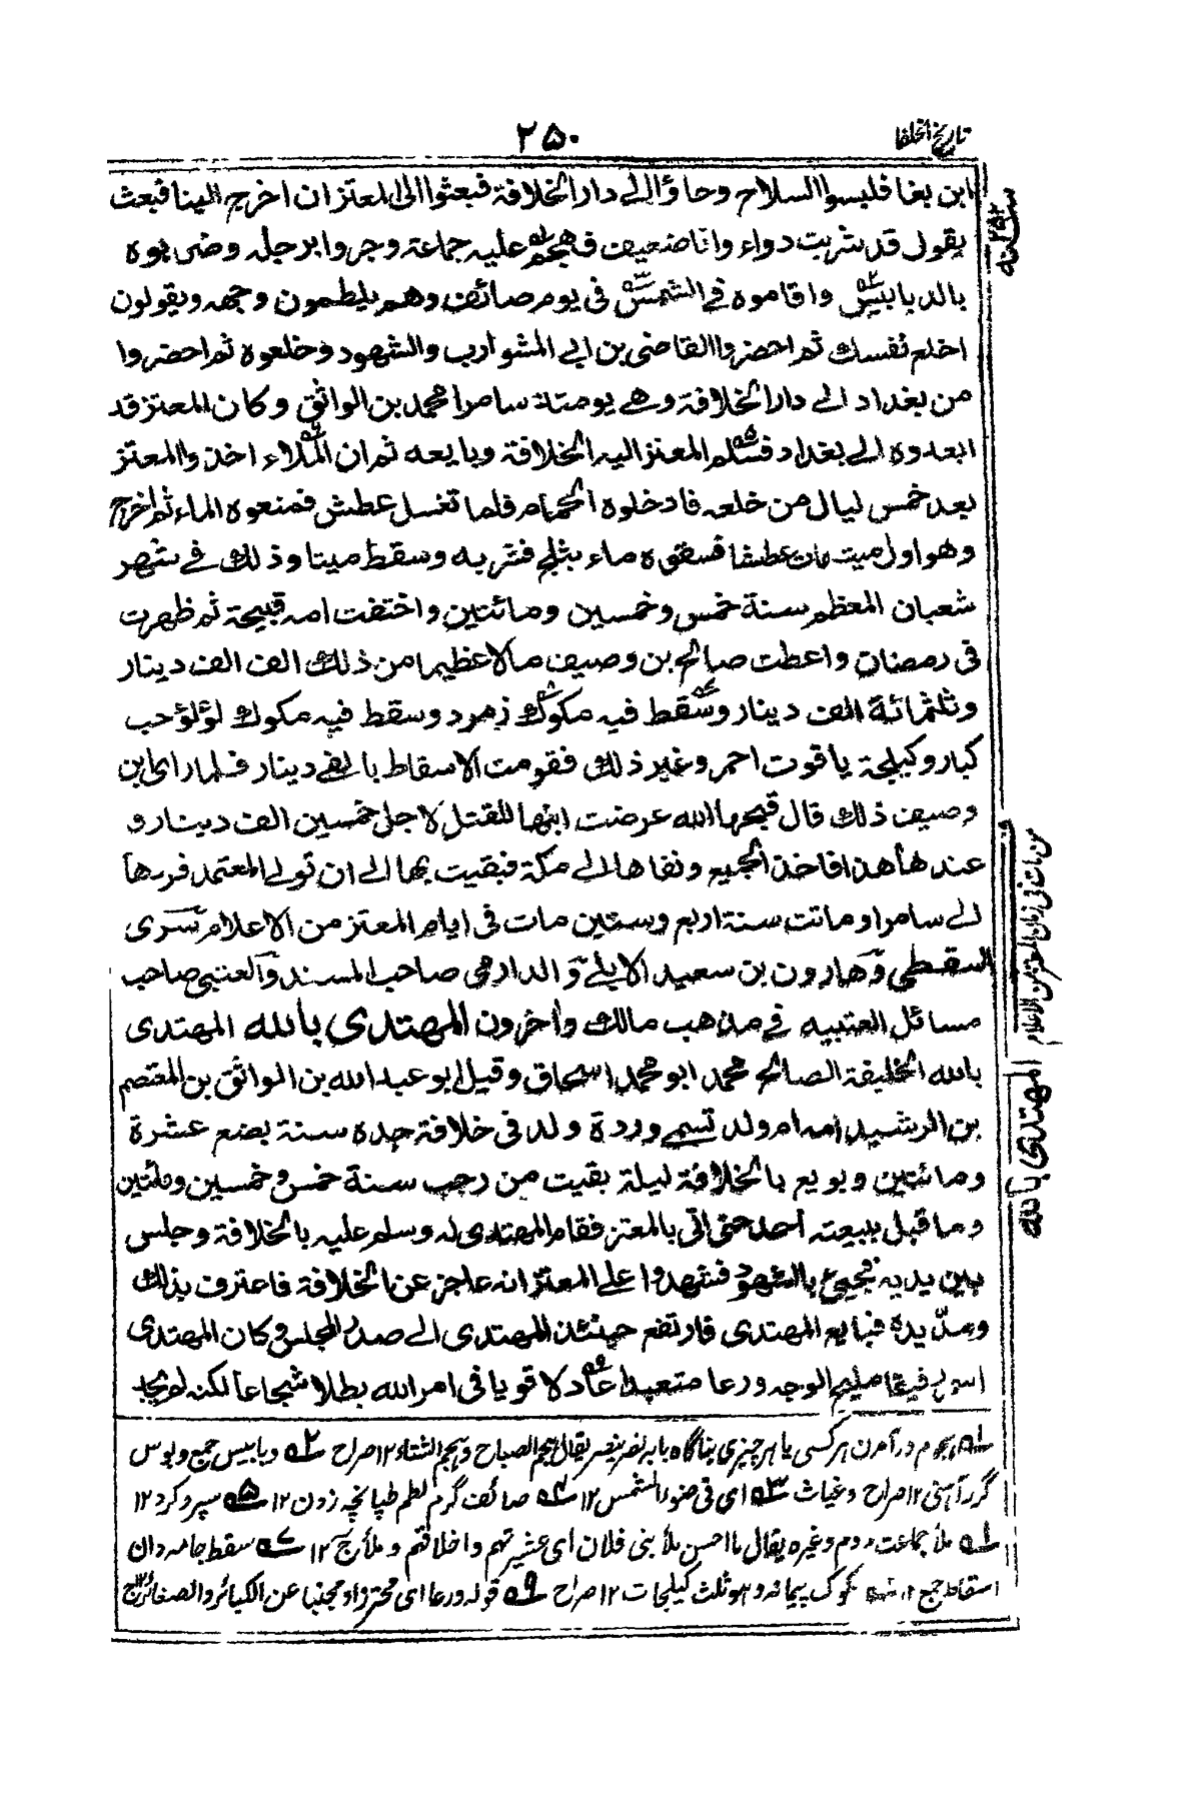 تاريخ الخلفا
٢٥٠
ابن بغا فلبسوا السلاح وجاؤ الے دار الخلافة فبعثوا الى المعتز ان اخرج الينا فبعث
يقول قد شربت دواء وانا ضعيف فهجم عليه جماعة وجروا برجله وضربوه
بالدبابيس واقاموه فے الشمس فى يوم صائف وهم يلطمون وجهه ويقولون
اخلع نفسك ثم احضروا القاضى بن ابى المشوارب والشهود وخلعوه ثم احضروا
من بغداد الے دار الخلافة وهے يومئذ سامرا محمد بن الواثق وكان المعتز قد
ابعده الے بغداد فسلم المعتز اليه الخلافة وبايعه ثم ان الملاء اخذوا المعتز
بعد خمس ليال من خلعه فادخلوه الحمام فلما تغسل عطش فمنعوه الماء ثم اخرج
وهو اول ميت مات عطشا فسقوه ماء بثلج فشربه وسقط ميتا وذلك فے شهر
شعبان المعظم سنة خمس وخمسين ومائتين واختفت امه قبيحة ثم ظهرت
فى رمضان واعطت صالح بن وصيف مالا عظيما من ذلك الف الف دينار
وثلثمائة الف دينار وسقط فيه مكوك زمرد وسقط فيه مكوك لؤلؤ حب
كبار وكيلجة ياقوت احمر وغير ذلك فقومت الاسقاط بالفے دينار فلما راى ابن
وصيف ذلك قال قبحها الله عرضت ابنها للقتل لاجل خمسين الف دينار و
عندها هذا فاخذ الجميع ونفاها الے مكة فبقيت بها الے ان تولے المعتمد فردها
الے سامرا وماتت سنة اربع وستين مات فى ايام المعتز من الاعلام سرى
السقطى وهارون بن سعيد الايلے والدارمى صاحب المسند والعتبى صاحب
مسائل العتبيه فے مذهب مالك واخرون المهتدى بالله المهتدى
بالله الخليفة الصالح محمد ابو محمد اسحاق وقيل ابو عبد الله بن الواثق بن المعتصم
بن الرشيد امه ام ولد تسمے وردة ولد فى خلافة جده سنة بضع عشرة
ومائتين وبويع بالخلافة ليلة بقيت من رجب سنة خمس وخمسين ومائتين
وما قبل بيعته احد حتى اتى بالمعتز فقام المهتدى له وسلم عليه بالخلافة وجلس
بين يديه فجيئ بالشهود فشهدوا على المعتز انه عاجز عن الخلافة فاعترف بذلك
ومد يده فبايع المهتدى فارتفع حينئذ المهتدى الے صدر المجلس وكان المهتدى
اسمر رقيقا مليح الوجه ورعا متعبدا عادلا قويا فى امر الله بطلا شجاعا لكنه لم يجد
١ هجوم درآمدن بر كسى يا بر چيزى بناگاه بابه نصر ينصر يقال هجم الصباح وهجم الشتاء ١٢ صراح ٢ دبابيس جمع دبوس
گرز آهنى ١٢ صراح وغياث ٣ اى فى ضوء الشمس ١٢ ٤ صائف گرم لطم طپانچه زدن ١٢ ٥ سپرد كرد ١٢
٦ ملأ جماعت مردم وغيره يقال ما احسن ملأ بنى فلان اى عشيرتهم واخلاقهم وملأ ج ١٢ ٧ سقط جامه دان
اسقاط جمع ١٢ ٨ مكوك پيمانه وهو ثلث كيلجات ١٢ صراح ٩ قوله ورعا اى محترزا ومجتنبا عن الكبائر والصغائر
سنه ٢٥٢
من مات فى زمان المعتز من الاعلام
المهتدى بالله